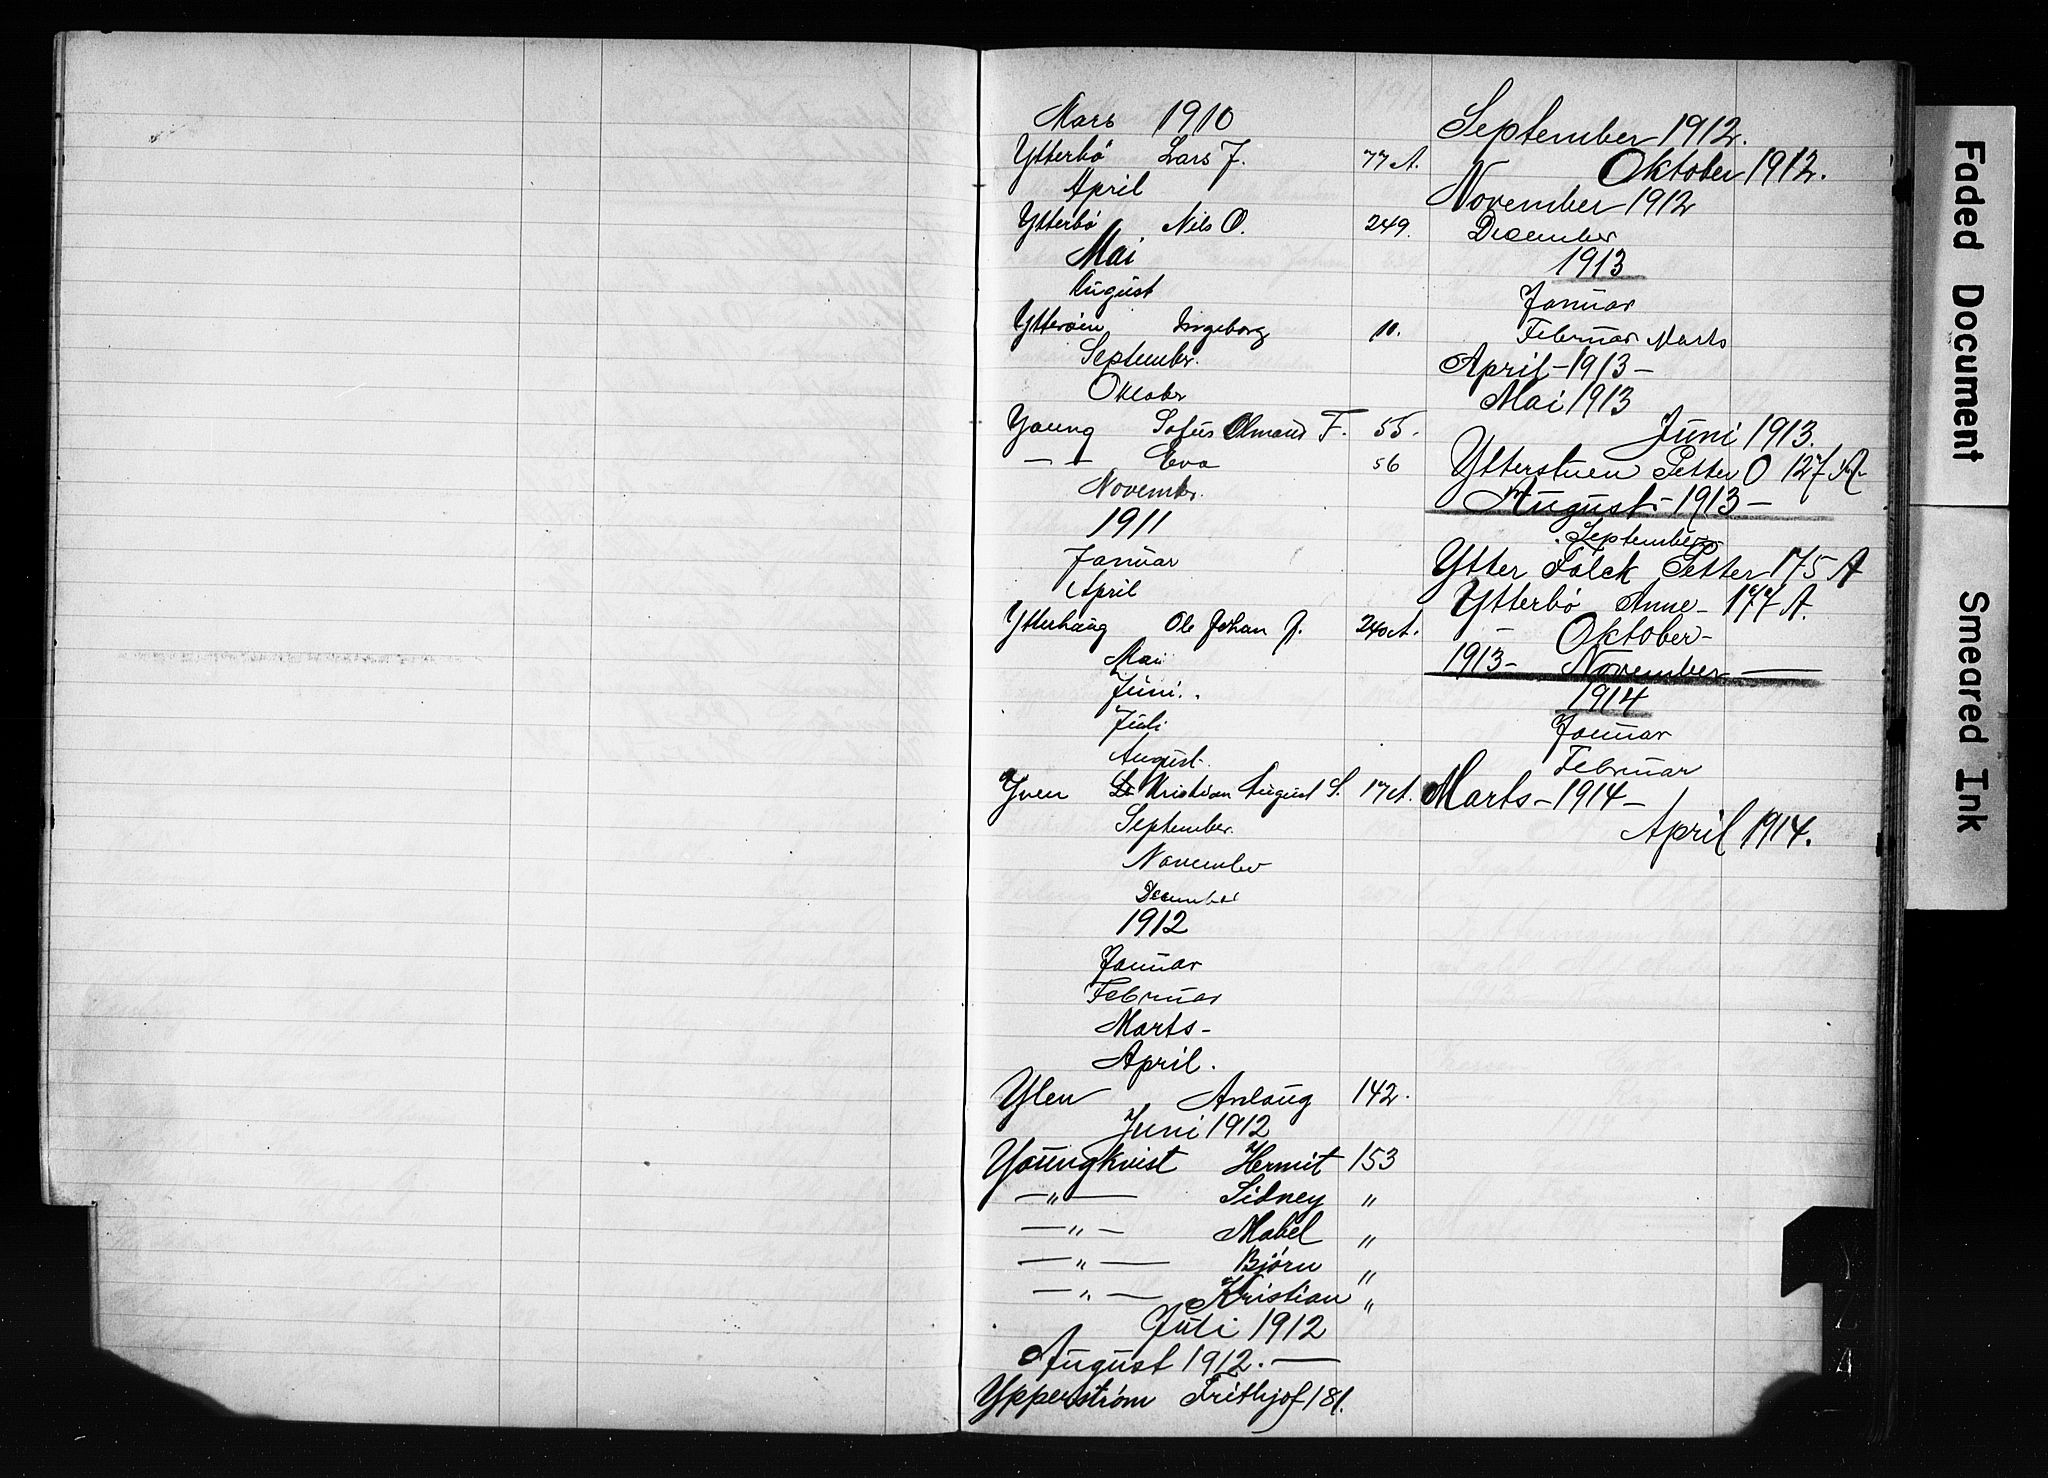 Mars 1910
Ytterbö Lars J. 77 A.
April
Ytterbö Nils O. 249.
Mai
August
Ytteröien Ingeborg 10.
September.
Oktober
Young Sofus Amaus F. 55.
— — Eva 56
Novembr.
1911
Januar
April
Ytterhaug Ole Johan J. 240 A.
Mai
Juni.
Juli
August.
Yven Kristian August S. 17 A.
September.
November
December
1912
Januar
Februar
Marts -
April.
Ylen Anlaug 142.
Juni 1912
Youngkvist Hermit 153
— " — Sidney "
— " — Mabel "
— " — Bjørn "
— " — Kristian "
Juli 1912
August 1912. —
Ypperström Frithjof 181.
September 1912.
Oktober 1912.
November 1912
December
1913
Januar
Februar Marts
April - 1913 -
Mai 1913
Juni 1913.
Ytterstuen Petter O 127 A.
August - 1913 -
September
Ytter Falck Petter 175 A
Ytterbø Anne - 177 A.
- Oktober -
1913 - November —
1914
Januar
Februar
Marts - 1914 -
April 1914.
Faded Document
Smeared Ink
Y
Z